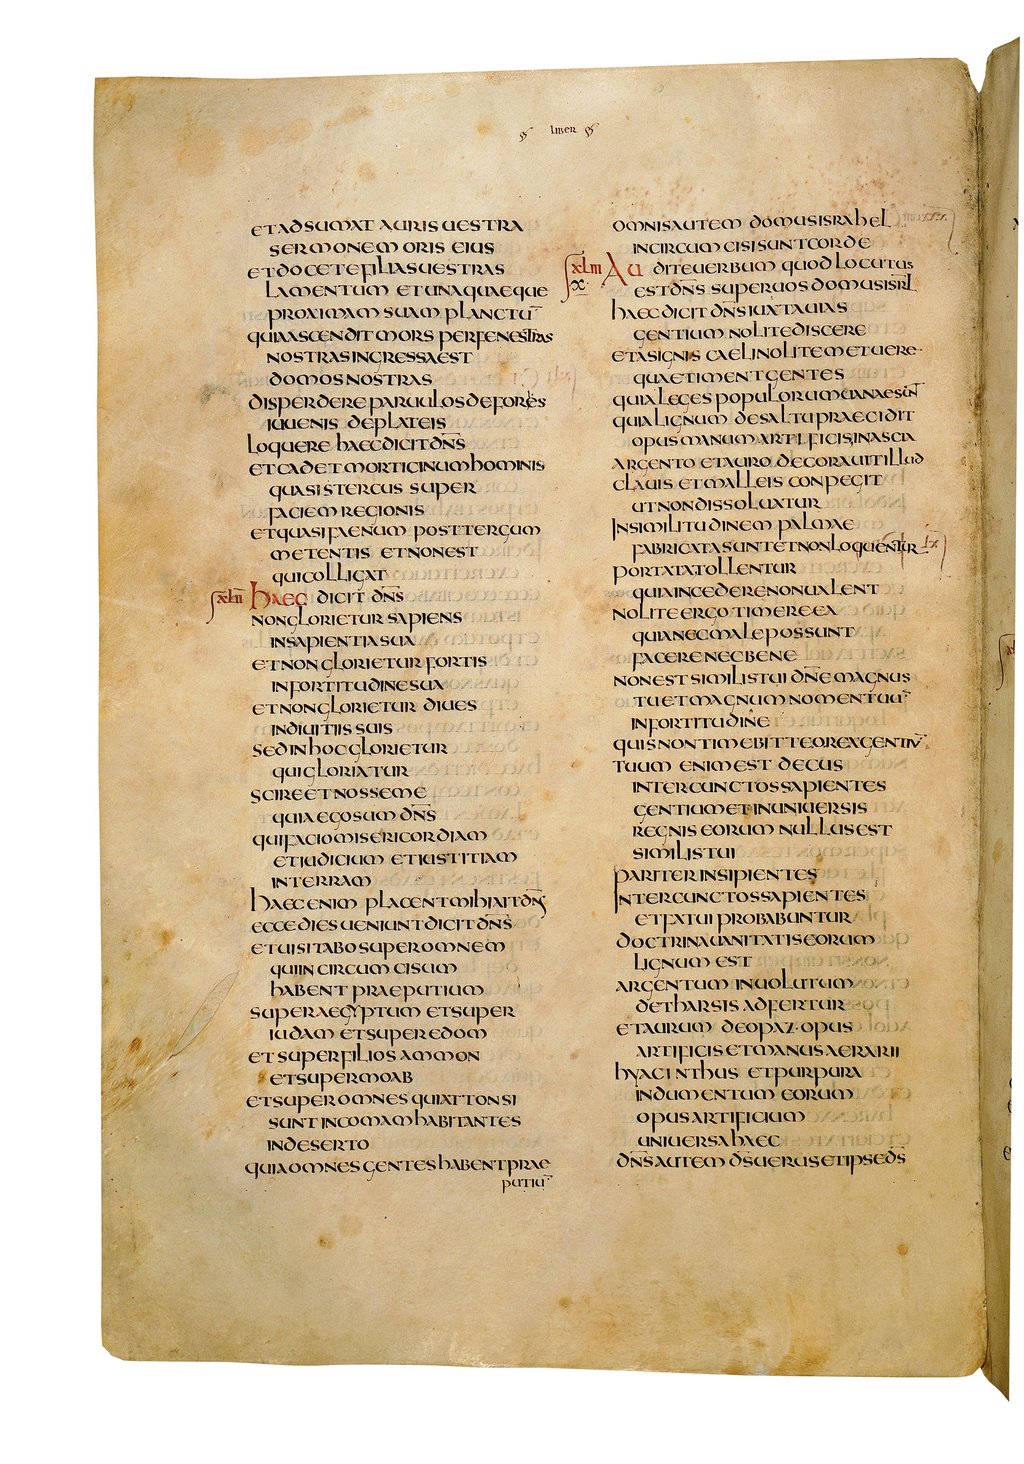 liber
et adsumat auris uestra
sermonem oris eius
et docete filias uestras
lamentum et unaquaeque
proximam suam planctū
quia ascendit mors per fenestras
nostras ingressa est
domos nostras
disperdere paruulos deforis
iuuenis de plateis
loquere haec dicit dn̄s
et cadet morticinum hominis
quasi stercus super
faciem regionis
et quasi faenum post tergum
metentis et non est
qui colligat
xlii haec dicit dn̄s
non glorietur sapiens
in sapientia sua
et non glorietur fortis
in fortitudine sua
et non glorietur diues
in diuitiis suis
sed in hoc glorietur
qui gloriatur
scire et nosse me
quia ego sum dn̄s
qui facio misericordiam
et iudicium et iustitiam
in terram
haec enim placent mihi ait dn̄s
ecce dies ueniunt dicit dn̄s
et uisitabo super omnem
qui incircumcisum
habent praeputium
super aegyptum et super
iudam et super edom
et super filios ammon
et super moab
et super omnes qui attonsi
sunt in comam habitantes
in deserto
quia omnes gentes habent prae
putiū
omnis autem domus israhel
incircumcisi sunt corde
xliii Audite uerbum quod locutus
x est dn̄s super uos domus isrl
haec dicit dn̄s iuxta uias
gentium nolite discere
et a signis caeli nolite metuere
quae timent gentes
quia leges populorum uanae sūt
quia lignum de saltu praecidit
opus manum artificis in ascia
argento et auro decorauit illud
clauis et malleis conpegit
ut non dissoluatur
In similitudinem palmae
fabricata sunt et non loquentur lx
portata tollentur
quia incedere non ualent
nolite ergo timere ea
quia nec male possunt
facere nec bene
non est similis tui dn̄e magnus
tu et magnum nomen tuū
in fortitudine
quis non timebit te o rex gentiū
tuum enim est decus
inter cunctos sapientes
gentium et in uniuersis
regnis eorum nullus est
similis tui
pariter insipientes
Inter cunctos sapientes
et fatui probabuntur
doctrina uanitatis eorum
lignum est
argentum inuolutum
de tharsis adfertur
et aurum de opaz· opus
artificis et manus aerarii
hyacinthus et purpura
indumentum eorum
opus artificium
uniuersa haec
dn̄s autem d̄s uerus est ipse d̄s